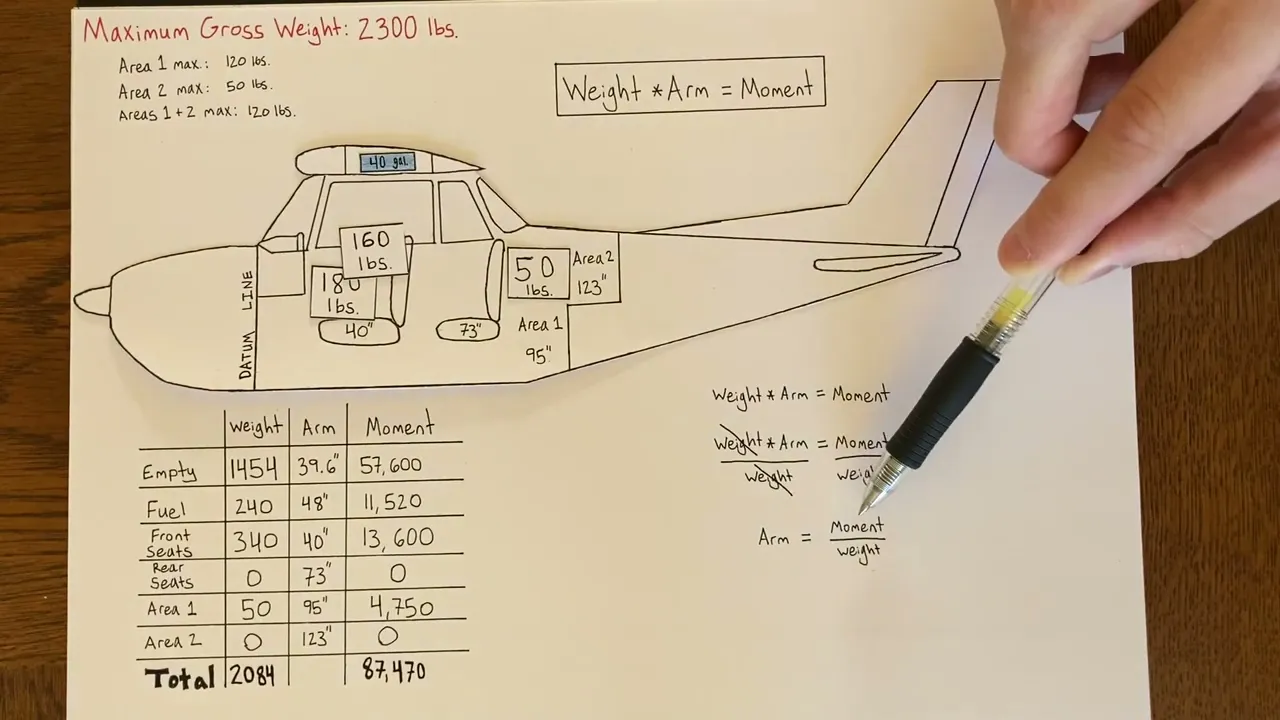 Maximum Gross Weight: 2300 lbs.
Area 1 max.: 120 lbs.
Area 2 max: 50 lbs.
Areas 1+2 max: 120 lbs.
Weight * Arm = Moment
40 gal.
160
lbs.
180
lbs.
40"
73"
DATUM LINE
50
lbs.
Area 2
123"
Area 1
95"
Weight * Arm = Moment
Weight * Arm = Moment
Weight
Arm = Moment
Weight
Weight Arm Moment
Empty 1454 39.6" 57,600
Fuel 240 48" 11,520
Front
Seats 340 40" 13,600
Rear
Seats 0 73" 0
Area 1 50 95" 4,750
Area 2 0 123" 0
Total 2084 87,470